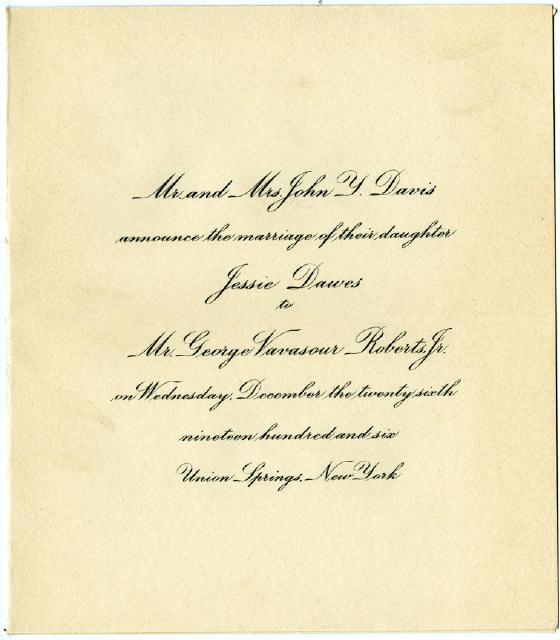 Mr. and Mrs. John Y. Davis
announce the marriage of their daughter
Jessie Dawes
to
Mr. George Vavasour Roberts, Jr.
on Wednesday, December the twenty sixth
nineteen hundred and six
Union Springs, New York